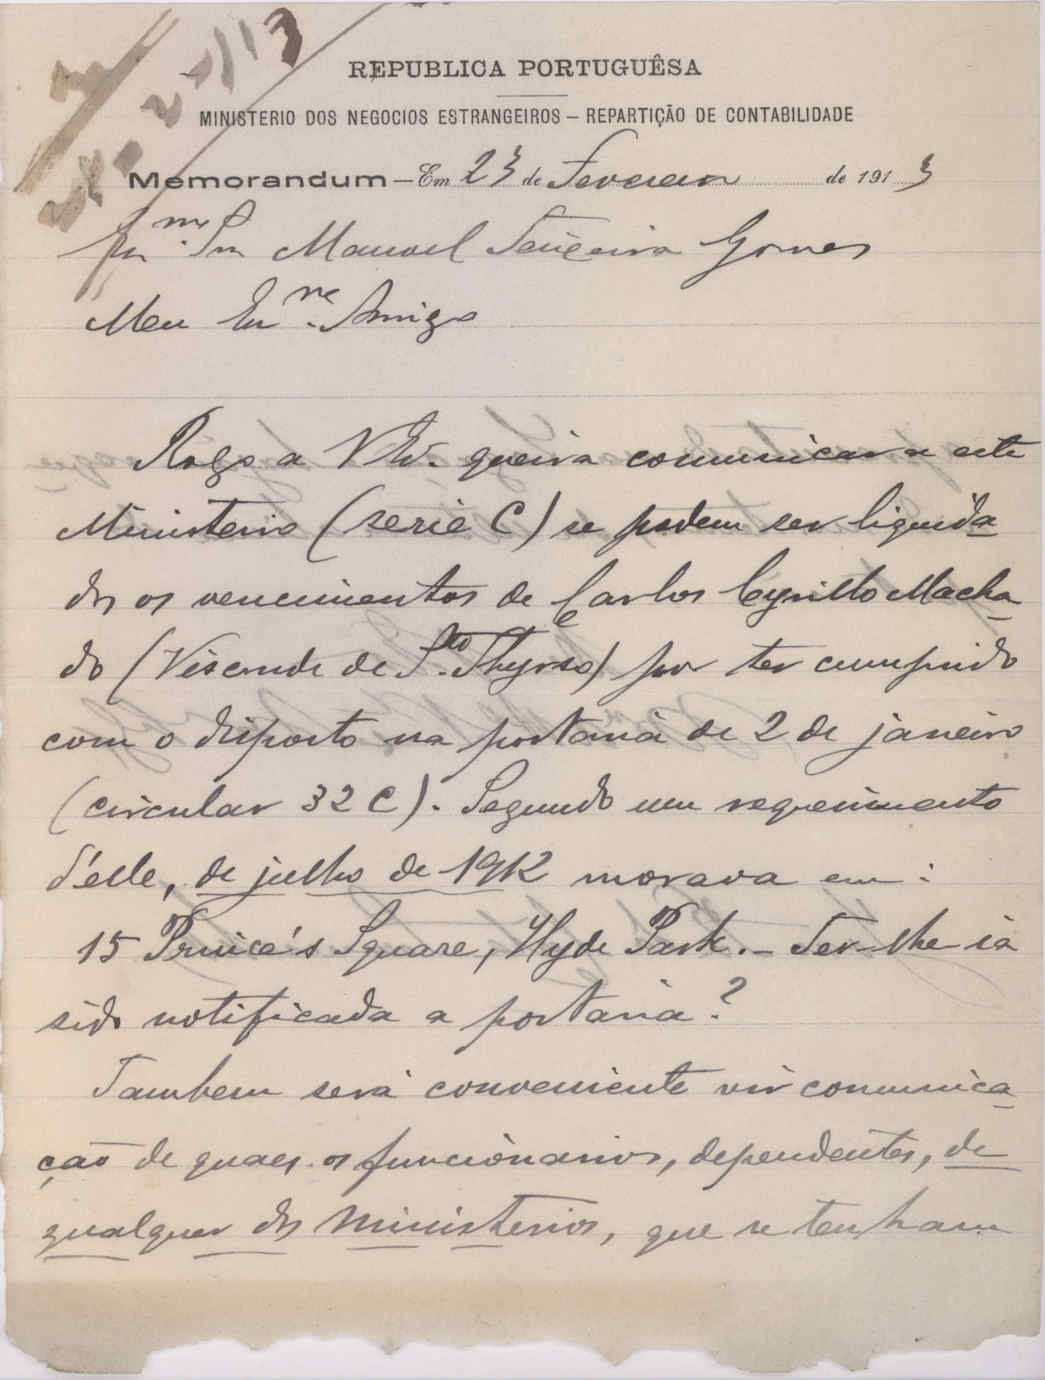 REPUBLICA PORTUGUÊSA
MINISTERIO DOS NEGOCIOS ESTRANGEIROS – REPARTIÇÃO DE CONTABILIDADE
Memorandum – Em 23 de Fevereiro de 1913
Exmo. Snr Manuel Teixeira Gomes
Meu Exmo. Amigo
Rogo a V Ex. queira comunicar a este
Ministerio (serie C) se podem ser liquida-
dos os vencimentos de Carlos Cyrillo Macha-
do (Visconde de Sto. Thyrso) por ter cumprido
com o disposto na portaria de 2 de janeiro
(circular 32 C). Segundo um requerimento
d'elle, de julho de 1912 morava em:
15 Prince's Square, Hyde Park. – Ter-lhe ia
sido notificada a portaria?
Tambem será conveniente vir comunica-
ção de quaes os funcionarios, dependentes, de
qualquer dos Ministerios, que se tenham